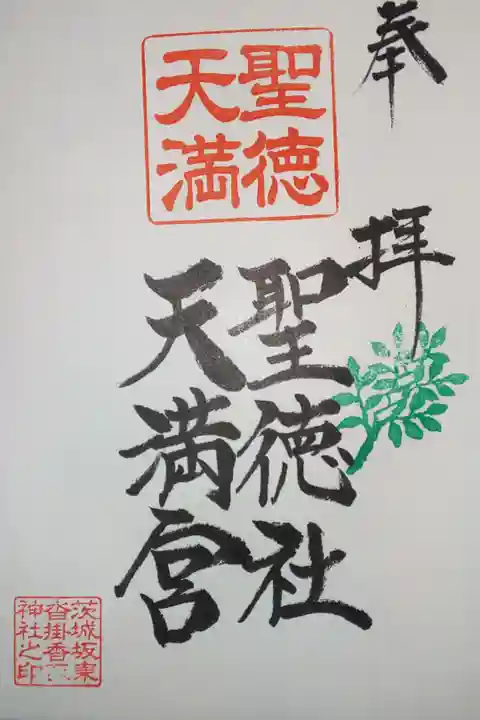 奉拝
聖徳
天満
聖徳社
天満宮
茨城坂東
沓掛香
神社之印